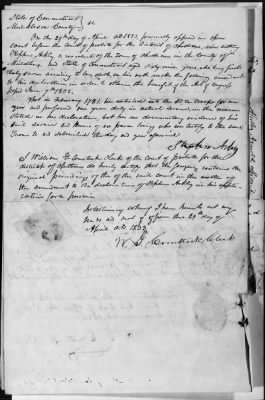 State of Connecticut
Middlesex County ss.
On the 29th day of April AD. 1833, personally appeared in open
Court before the Court of probate for the District of Chatham,
Stephen Arby a resident of the Town of Chatham in the County of
Middlesex and State of Connecticut aged sixty nine years, who being first
duly sworn according to law, doth on his oath make the following amendment
to his declaration in order to obtain the benefit of the Act of Congress
passed June 7th 1832.
That in January 1781 he enlisted into the State troops for one
year and performed one year in actual service, in the manner
stated in his declaration, but has no documentary evidence of his
said service and knows of no person living who can testify to the same
Sworn to and subscribed the day and year aforesaid
Stephen Arby
I William G. Comstock Clerk of the Court of probate for the
district of Chatham do hereby certify that the foregoing contains the
original proceedings of the said court in the matter of
the amendment to the declaration of Stephen Arby in his appli-
cation for a pension
In testimony whereof I have hereunto set my
hand and seal of office this 29th day of
April AD. 1833
W. G. Comstock, Clerk